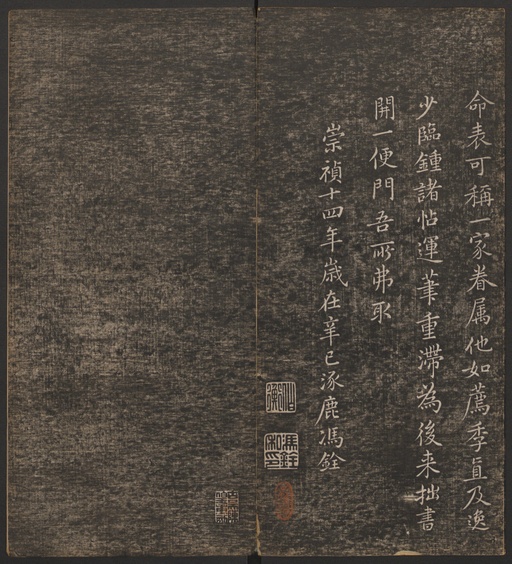 命表可稱一家眷属他如薦季直及逸
少臨鍾諸帖運筆重滯為後来拙書
開一便門吾所弗取
崇禎十四年歲在辛巳涿鹿馮銓
馮銓